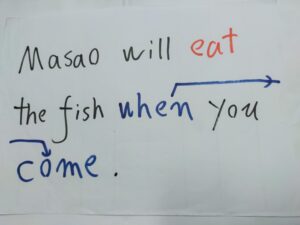 Masao will eat
the fish when you
come.